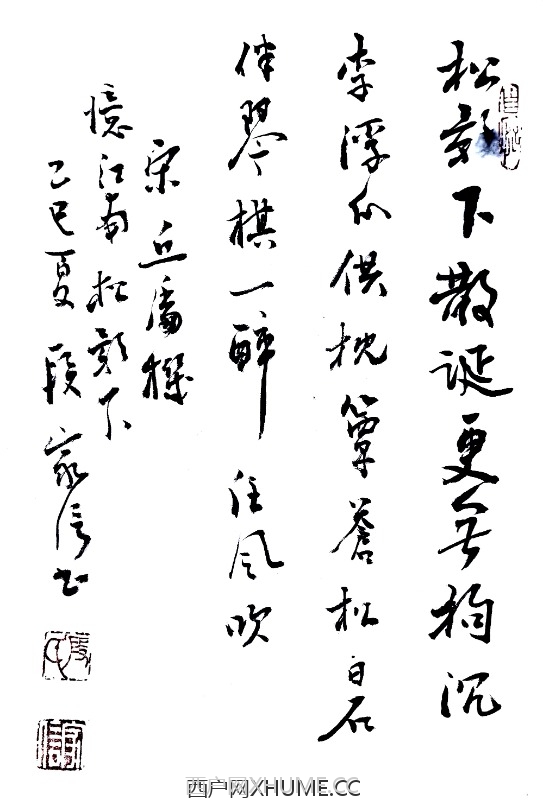 松影下散诞更無拘沉
李浮瓜供枕簟蒼松白石
伴琴棋一醉任风吹
宋丘處機
憶江南松影下
乙巳夏段家信书
西户网XHUME.CC